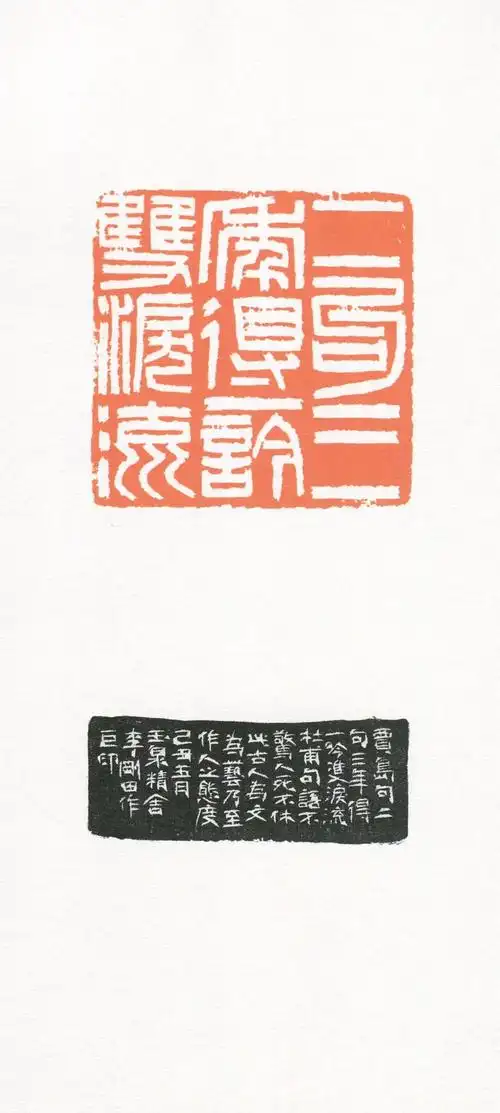 二句三
年得一訡
雙淚流
賈島句二
句三年得
一吟雙淚流
杜甫句語不
驚人死不休
此古人為文
為藝乃至
作人之態度
己丑五月
玉泉精舍
李剛田作
巨印